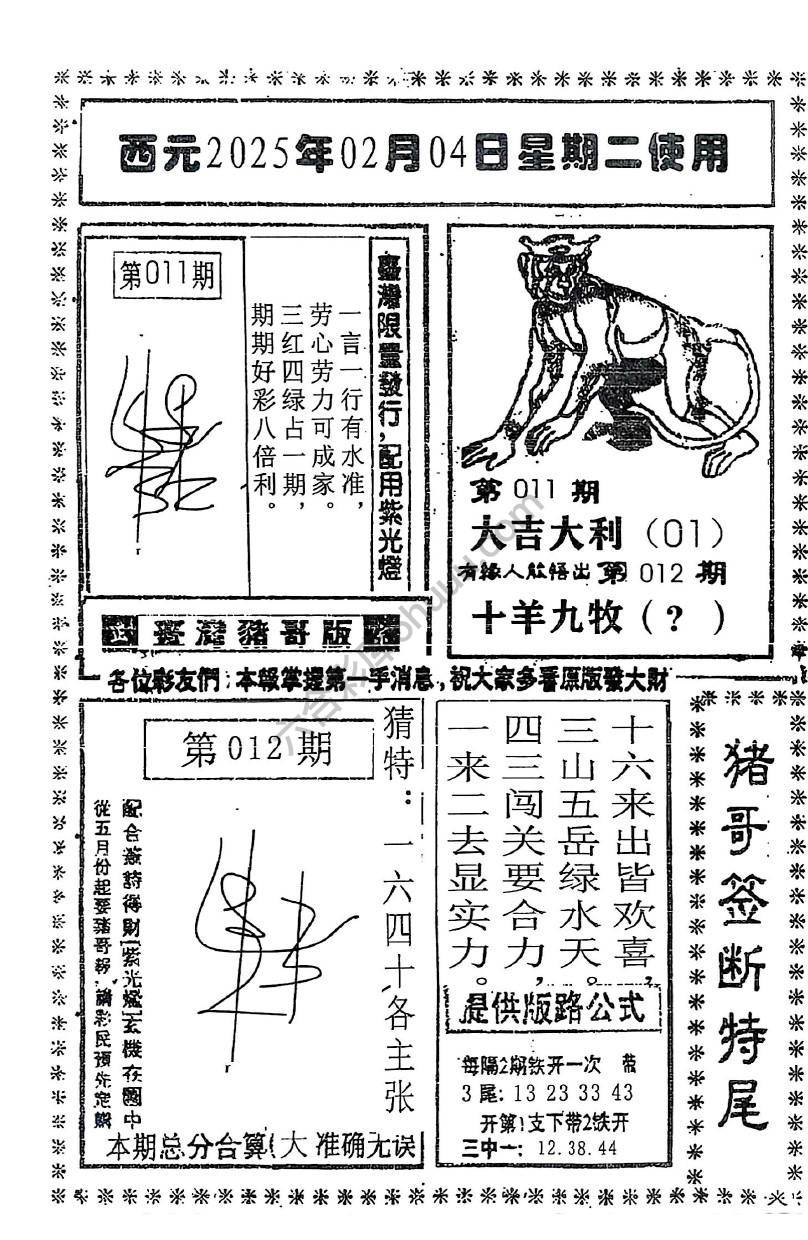 西元2025年02月04日星期二使用
第011期
臺灣限量發行，配用紫光燈
一言一行有水准，
劳心劳力可成家。
三红四绿占一期，
期期好彩八倍利。
臺灣豬哥版
第 011 期
大吉大利（01）
有緣人能悟出 第 012 期
十羊九牧（？）
各位彩友們：本報掌握第一手消息，祝大家多看原版發大財
第012期
猜特：一六四十各主张
配合簽詩得財
紫光燈
玄機在圖中
從五月份起要豬哥報，請彩民預先定購
本期总分合算（大 准确无误
十六来出皆欢喜，
三山五岳绿水天。
四三闯关要合力，
一来二去显实力。
提供版路公式
每隔2期铁开一次 带
3尾：13 23 33 43
开第1支下带2铁开
三中一：12.38.44
猪哥签断特尾